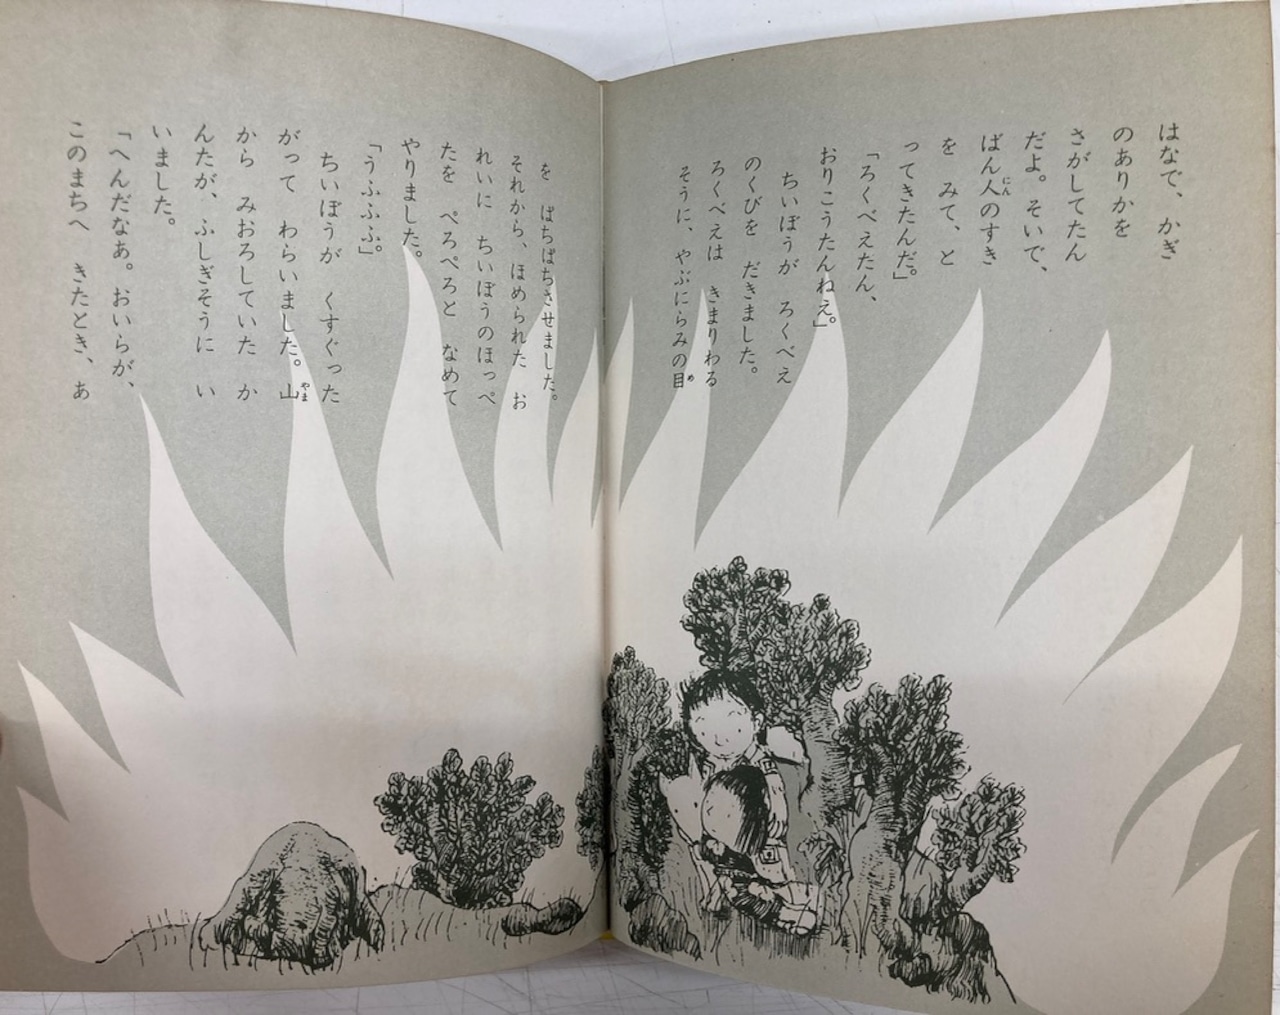 はなで、かぎ
のありかを
さがしてたん
だよ。そいで、
ばん人のすき
を　みて、と
ってきたんだ。」
「ろくべえたん、
おりこうたんねえ。」
　ちいぼうが　ろくべえ
のくびを　だきました。
　ろくべえは　きまりわる
そうに、やぶにらみの目
を　ぱちぱちさせました。
それから、ほめられた　お
れいに　ちいぼうのほっぺ
たを　ぺろぺろと　なめて
やりました。
「うふふふ」。
　ちいぼうが　くすぐった
がって　わらいました。山
から　みおろしていた　か
んたが、ふしぎそうに　い
いました。
「へんだなあ。おいらが、
このまちへ　きたとき、あ